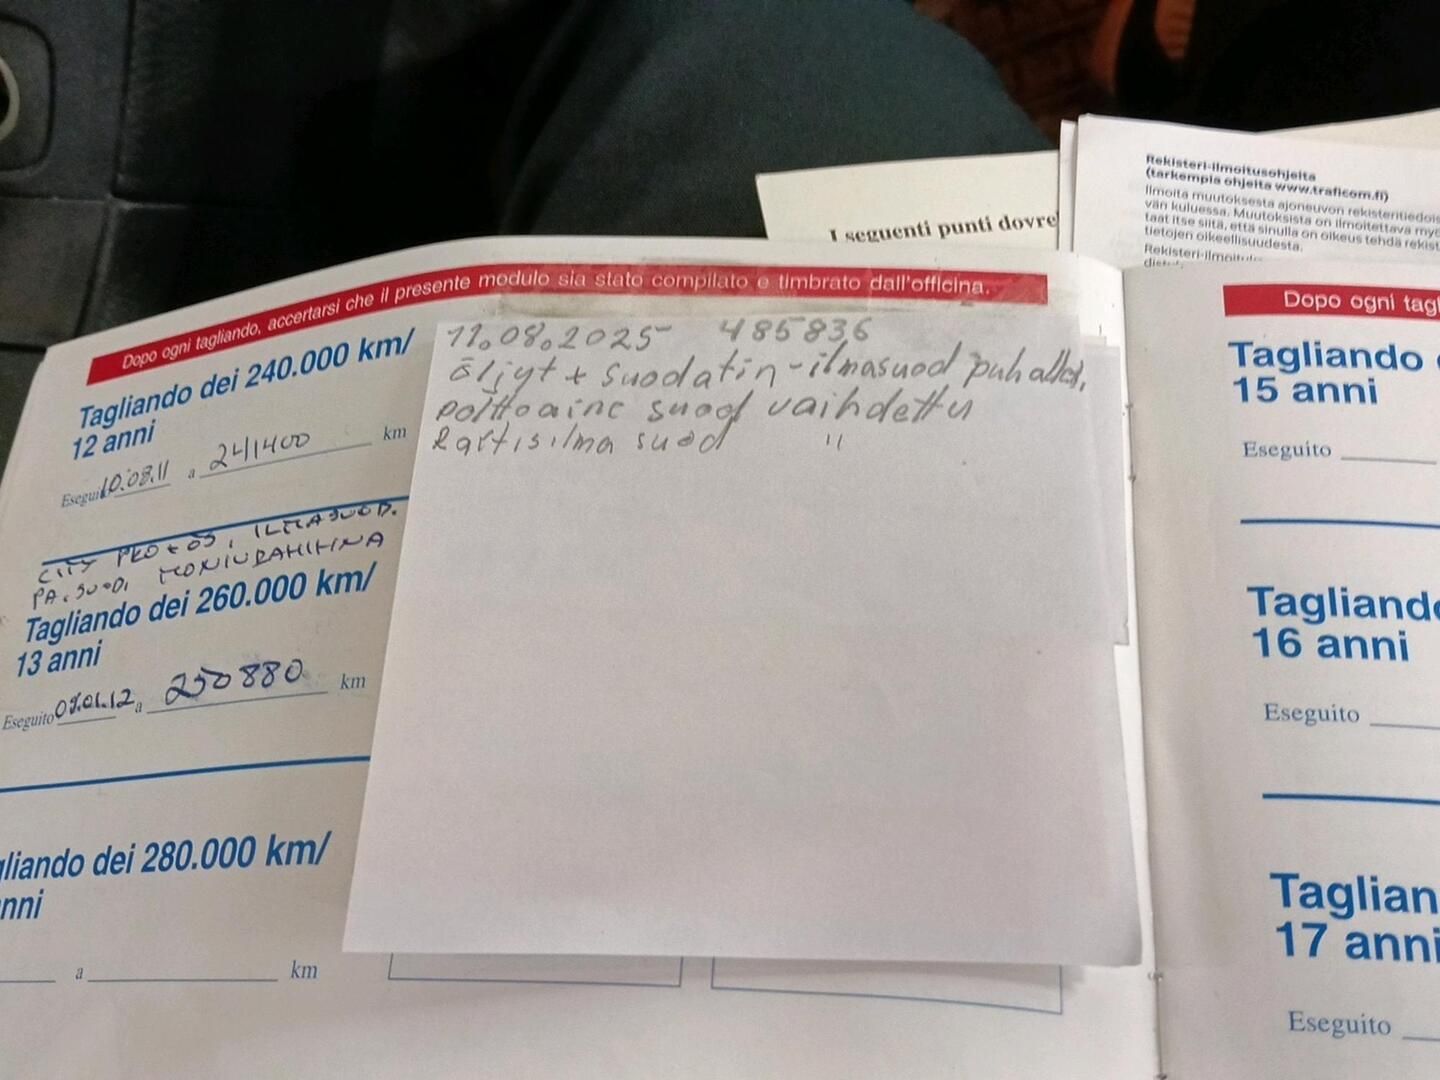 Rekisteri-ilmoitusohjeita
(tarkempia ohjeita www.traficom.fi)
Ilmoita muutoksesta ajoneuvon rekisteritiedois
vän kuluessa. Muutoksista on ilmoitettava myö
taat itse siitä, että sinulla on oikeus tehdä rekist
tietojen oikeellisuudesta.
I seguenti punti dovre
Dopo ogni tagliando, accertarsi che il presente modulo sia stato compilato e timbrato dall'officina.
Tagliando dei 240.000 km/
12 anni
Eseguito 10.08.11 a 241400 km
CITY PRO + ÖS, ILMASUOD.
PA.SUOD, MONIURAHIHNA
Tagliando dei 260.000 km/
13 anni
Eseguito 09.01.12 a 250880 km
gliando dei 280.000 km/
nni
a km
11.08.2025 485836
öljyt + suodatin - ilmasuod puhallet,
polttoaine suod vaihdettu
Raitisilma suod "
Dopo ogni tagl
Tagliando
15 anni
Eseguito
Tagliando
16 anni
Eseguito
Taglian
17 anni
Eseguito